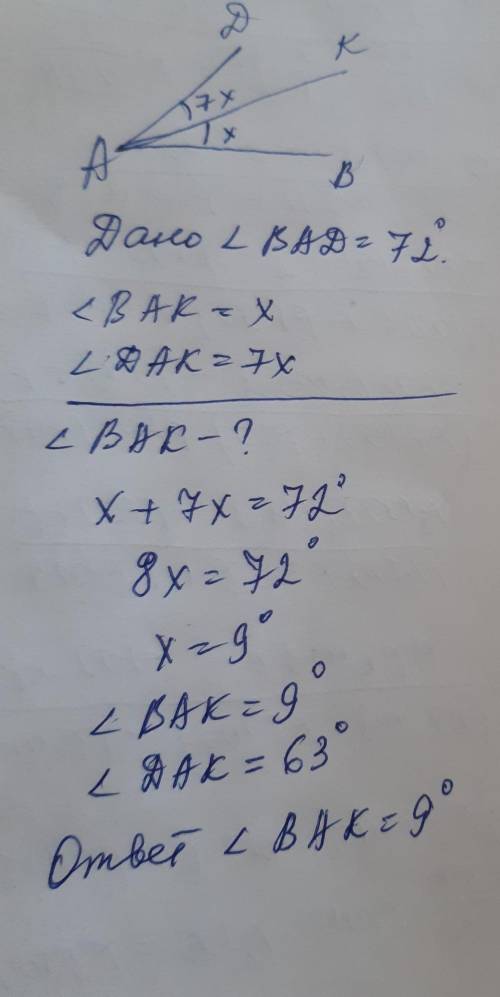 D
K
7x
x
A
B
Дано ∠ BAD = 72°.
∠ BAK = x
∠ DAK = 7x
∠ BAK - ?
x + 7x = 72°
8x = 72°
x = 9°
∠ BAK = 9°
∠ DAK = 63°
Ответ ∠ BAK = 9°